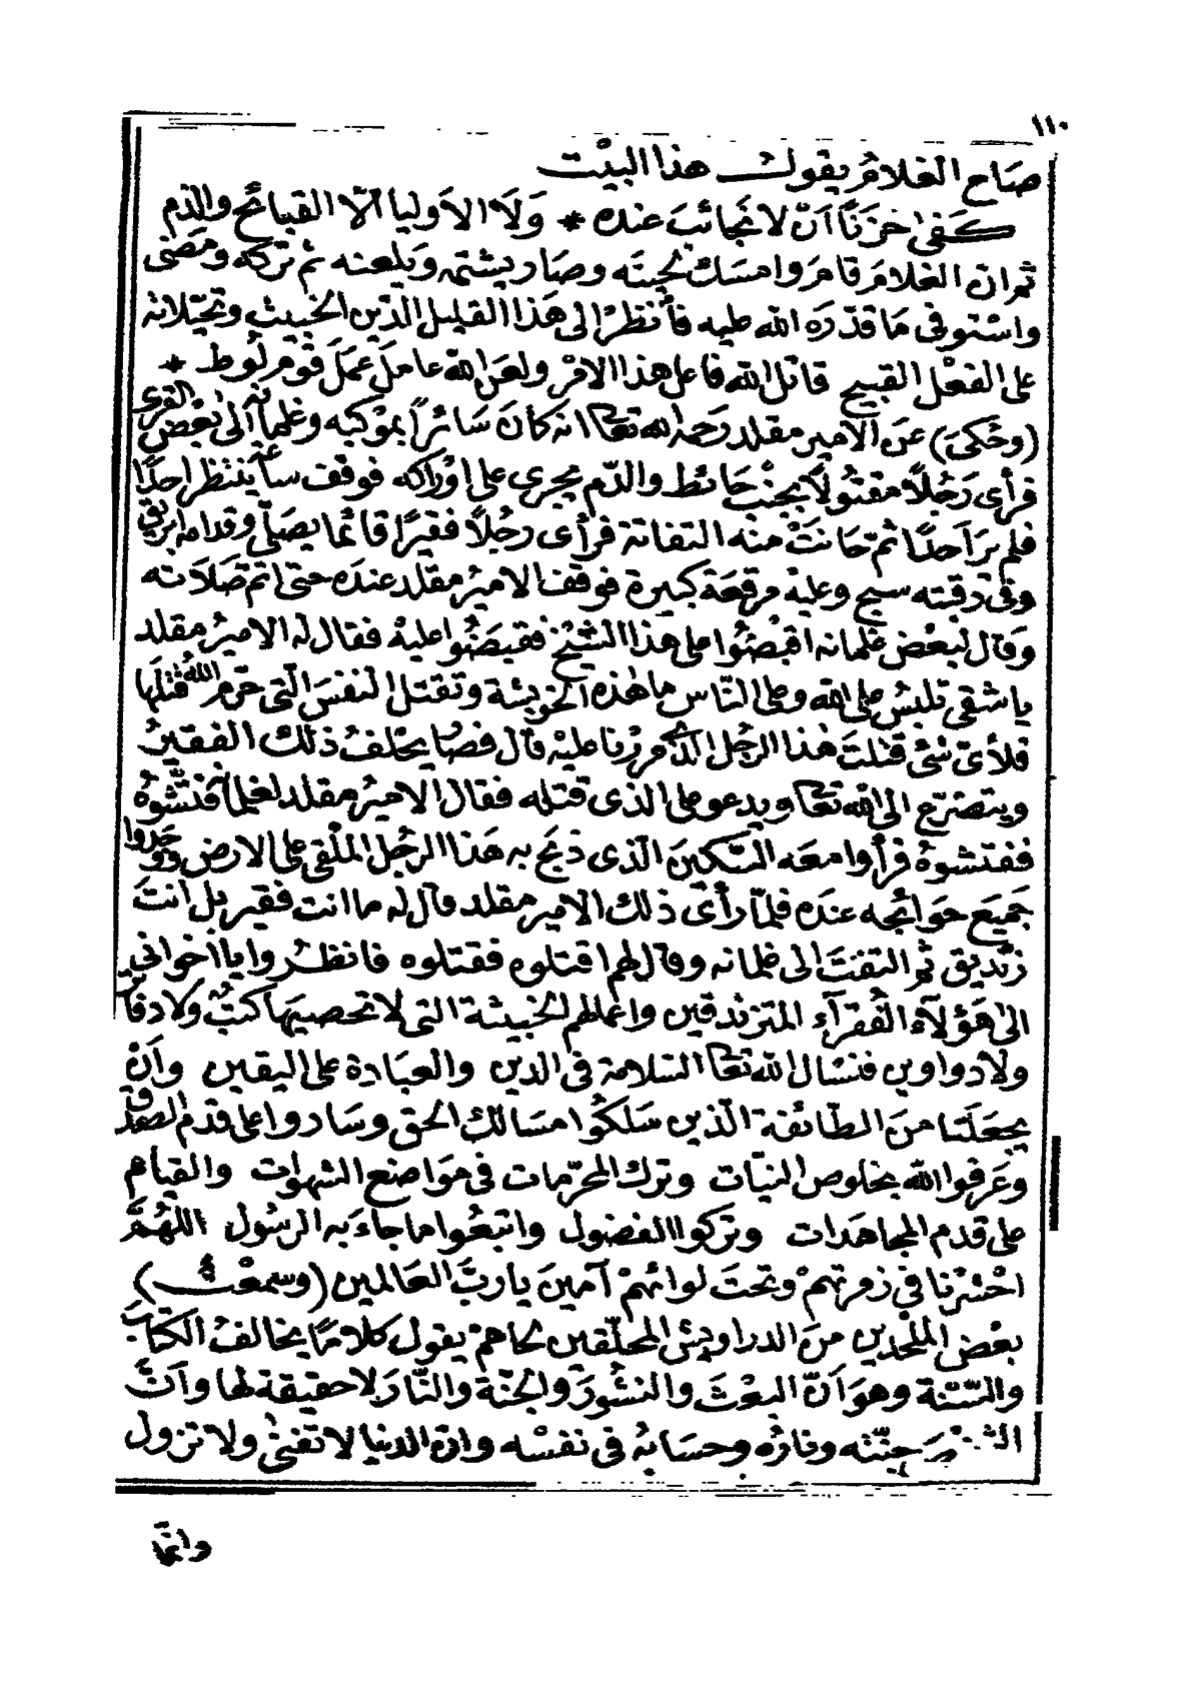 ١١٠
صَاح الغلامُ يقولُ هذا البيْت
كَفىٰ حَزَنًا اَنّ لا نجائبَ عنده * وَلَا الاَوليا الّا القبائحُ والذم
ثم ان الغلامَ قامَ وامسَك لحيته وصَار يشتمه وَيلعنه ثم تركه ومَضى
واسْتوفى مَا قدّرَه الله عليه فاُنظرْ الى هَذا القليل الدّين الخبيث وتحيّلاته
على الفعْل القبيح قاتل الله فاعل هذا الامْر ولعَن الله عامل عَمَل قوم لُوط *
(وحُكىَ) عَن الامير مقلد رَحمه الله تعَالى انه كانَ سَائراً بموْكبه وغلمانه الى بَعْض القرى
فرأى رَجُلاً مقتُولاً بجنْب حَائط والدّم يجرى على اوْراكه فوقف ساعة ينتظر احَدًا
فلم يرَ اَحدًا ثم حَانَتْ منْه التفاتة فرأى رجُلاً فقيرًا قائما يصَلّى وقدامه ابريق
وفى رقبته سبح وعليْه مرقعَة كبيرة فوقف الاميرُ مقلد عندَه حتى اتم صَلاَته
وَقال لبعْض غلمانه اقبضُوا على هَذا الشيْخ فقبضُوا عليْه فقال له الاميرُ مقلد
يا شقى تلبسُ على الله وعلى النّاس ما هذه الخويثة وتقتل النفسَ التى حرّم اللهُ قتلَها
فلأىّ شئ قتلتَ هَذا الرجُل الذى مررْنا عليْه قال فصَار يحْلفُ ذلك الفقيرُ
ويتضرّع الى الله تعَالى ويدعو على الذى قتله فقال الاميرُ مقلد لغلمانه فتّشوهُ
ففتشوهُ فرأوا معَه السّكينَ الّذى ذبح به هَذا الرجُل الملْقى على الارض ووَجدُوا
جَميعَ حَوائجه عندَه فلمّا رأىَ ذلك الامير مقلد قال له ما انت فقير بل انتَ
زنْديق ثم التفتَ الى غلمانه وقال لهم اقتلوه فقتلوه فانظرُوا يا اخوانى
الىٰ هَؤلَاء الفُقرَآء المتزندقين واعمالهم الخبيثة التى لا تحصيهَا كتبٌ ولا دفاتر
ولا دواوين فنسْال الله تعَالى السّلامة فى الدين والعبَادة على اليقين وَاَنْ
يجعَلنا منَ الطّائفة الّذين سَلكُوا مسَالك الحق وسَاروا على قدم الصدق
وعَرفوا الله بخلوص النيّات وترك المحرّمات فى مَواضع الشهوات والقيام
على قدم المجاهَدات وتركوا الفضول واتبعُوا ما جاءَ به الرسُول اللهُمَّ
احْشرْنا فى زمرتهمْ وتحتَ لوائهمْ آمينَ يا ربَّ العَالمين (وسمعْتُ)
بعْض الملْحدين منَ الدراويش المحلّقين لحاهمْ يقول كلامًا يخالفُ الكتابَ
والسّنة وهوَ اَنّ البعْثَ والنشُورَ والجنّة والنّارَ لا حقيقة لها وانّ
جنّته ونارُه وحسَابهُ فى نفسْه وانّ الدنيا لا تفنىٰ ولا تزول
وانما